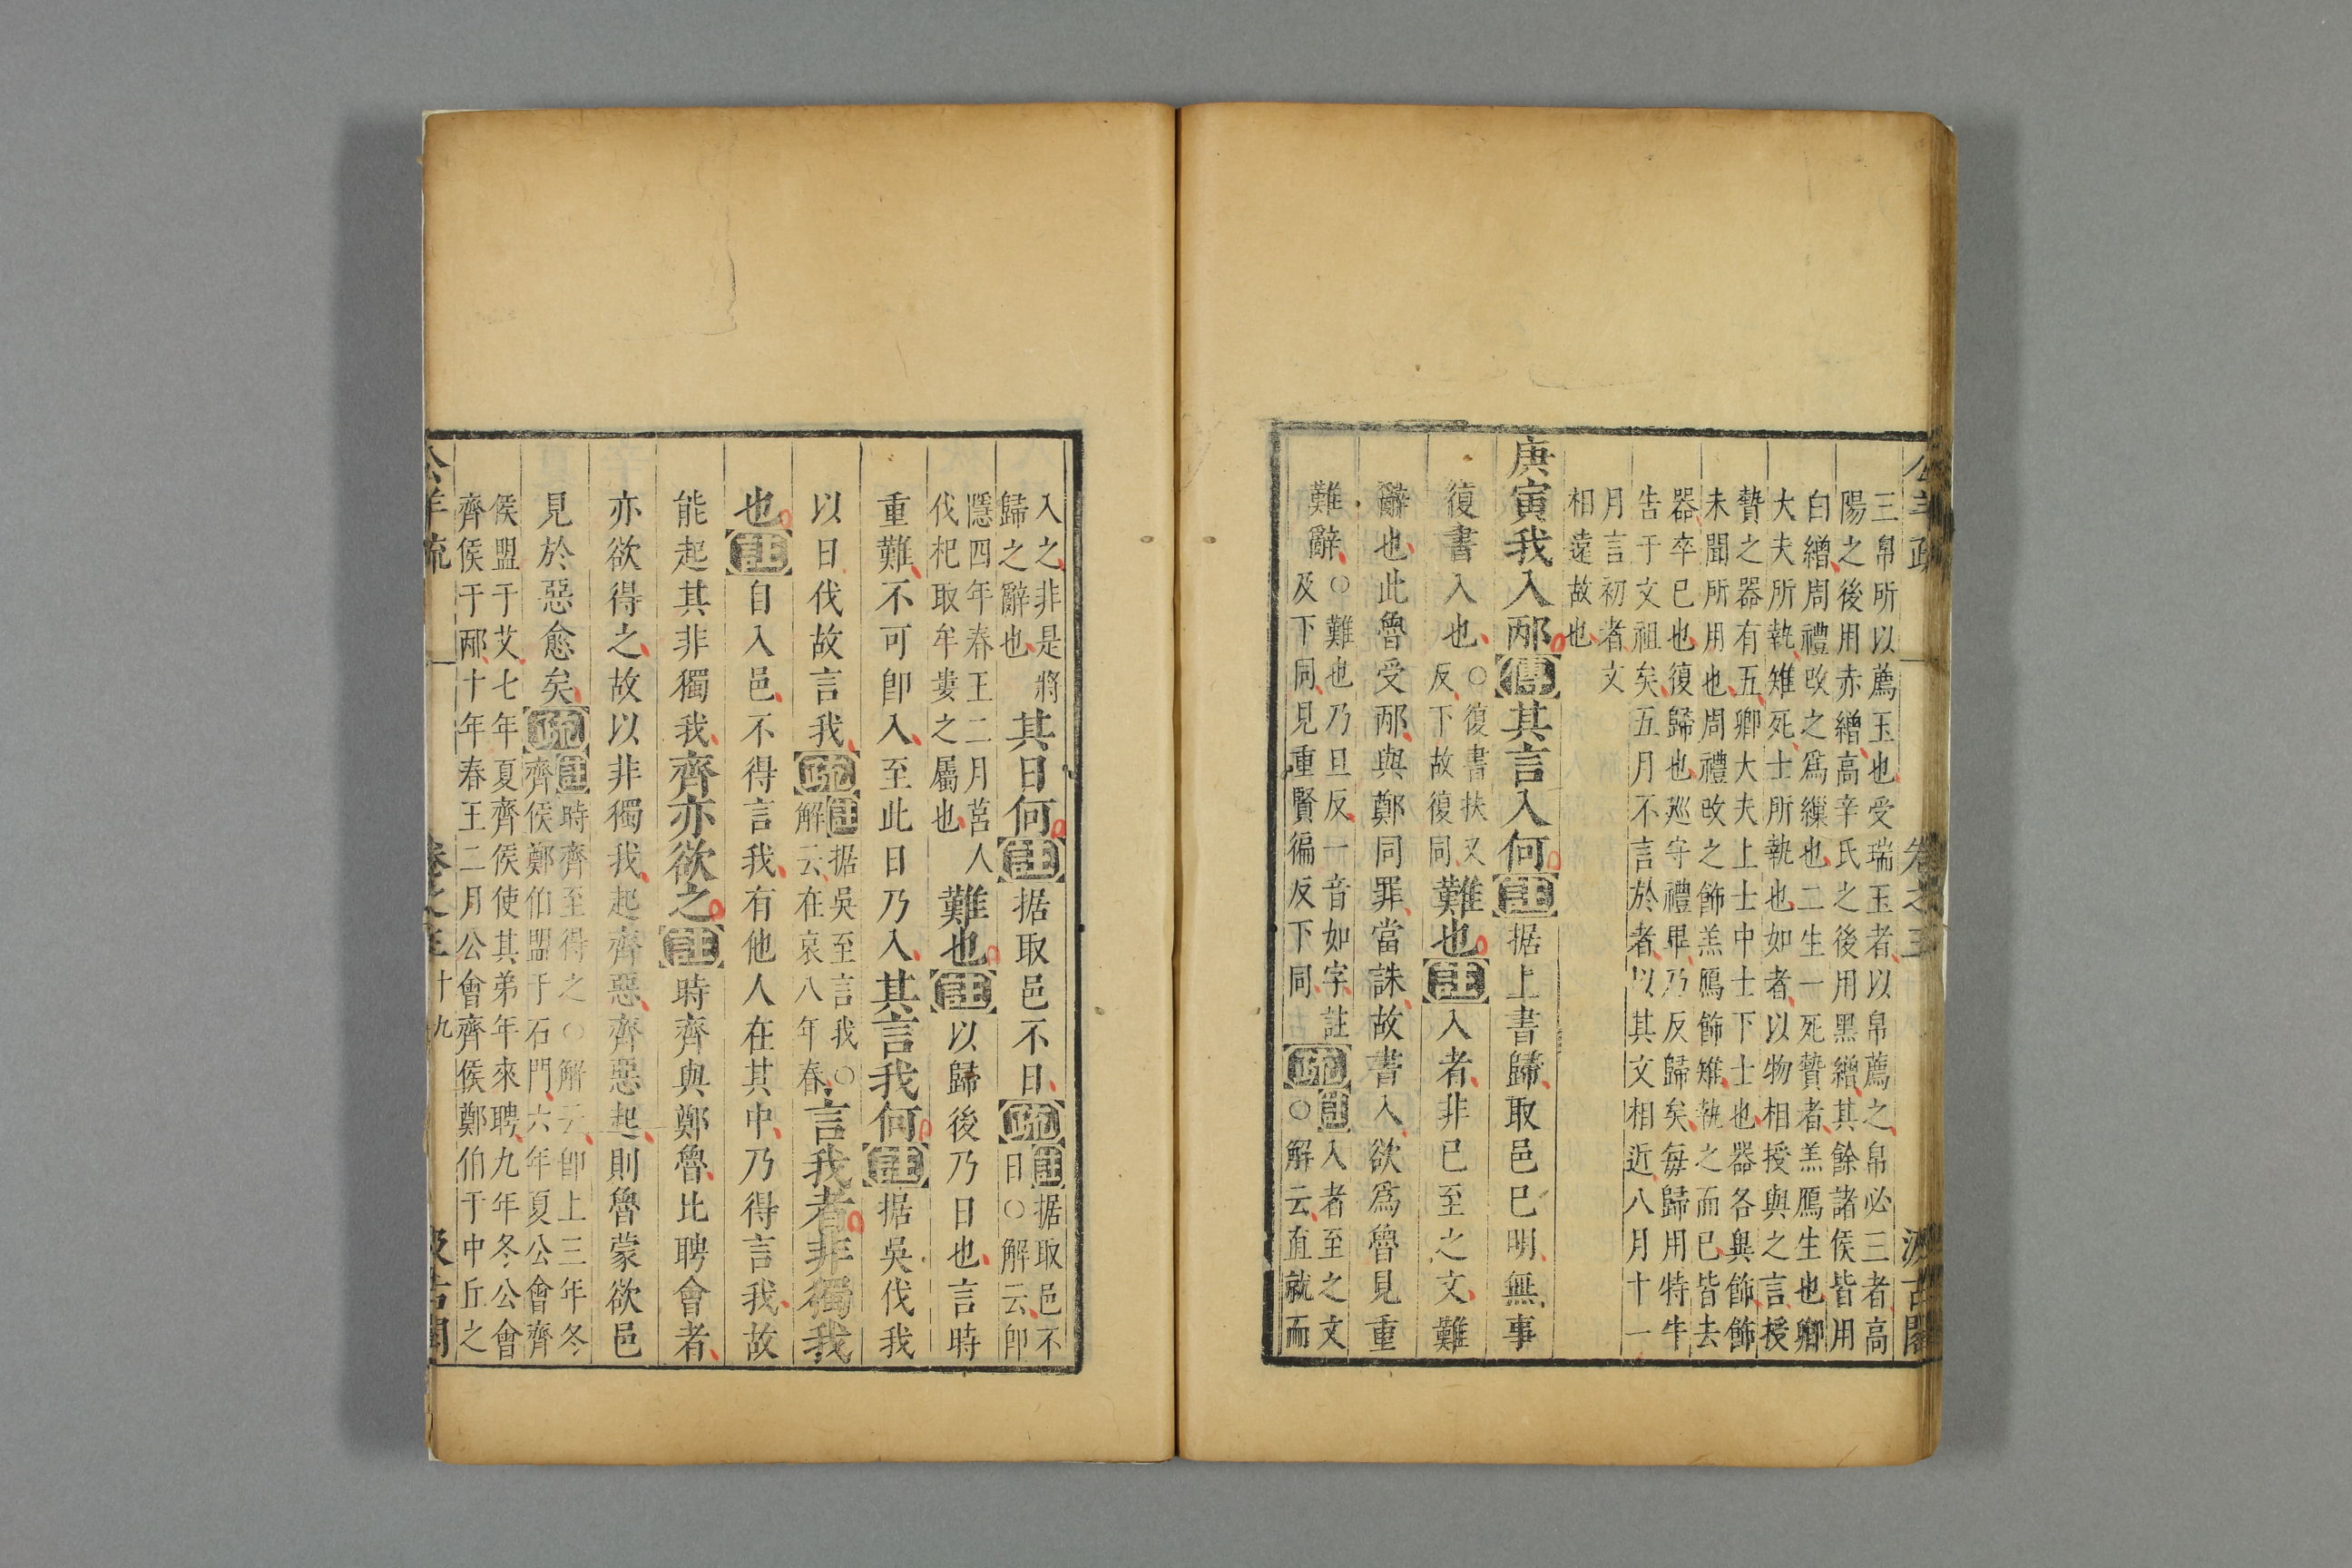 公羊疏 卷之三 汲古閣
三帛所以薦玉也受瑞玉者以帛薦之帛必三者高
陽之後用赤繒高辛氏之後用黑繒其餘諸侯皆用
白繒周禮改之爲繅也二生一死贄者羔鴈生也卿
大夫所執雉死士所執也如者以物相授與之言授
贄之器有五卿大夫上士中士下士也器各異飾飾
未聞所用也周禮改之飾羔鴈飾雉執之而已皆去
器卒已也復歸也巡守禮畢乃反歸矣每歸用特牛
告于文祖矣五月不言於者以其文相近八月十一
月言初者文
相遠故也
庚寅我入邴傳其言入何註据上書歸取邑已明無事
復書入也○復書扶又反下故復同難也註入者非已至之文難
辭也此魯受邴與鄭同罪當誅故書入欲爲魯見重
難辭○難也乃旦反一音如字註及下同見重賢徧反下同疏註入者至之文○解云直就而
入之非是將歸之辭也其日何註据取邑不日疏註据取邑不日○解云卽
隱四年春王二月莒人伐杞取牟婁之屬也難也註以歸後乃日也言時
重難不可卽入至此日乃入其言我何註据吳伐我
以日伐故言我疏註据吳至言我○解云在哀八年春言我者非獨我
也註自入邑不得言我有他人在其中乃得言我故
能起其非獨我齊亦欲之註時齊與鄭魯比聘會者
亦欲得之故以非獨我起齊惡齊惡起則魯蒙欲邑
見於惡愈矣疏註時齊至得之○解云卽上三年冬齊侯鄭伯盟于石門六年夏公會齊
侯盟于艾七年夏齊侯使其弟年來聘九年冬公會
齊侯于邴十年春王二月公會齊侯鄭伯于中丘之
公羊疏 卷之三 十九 汲古閣